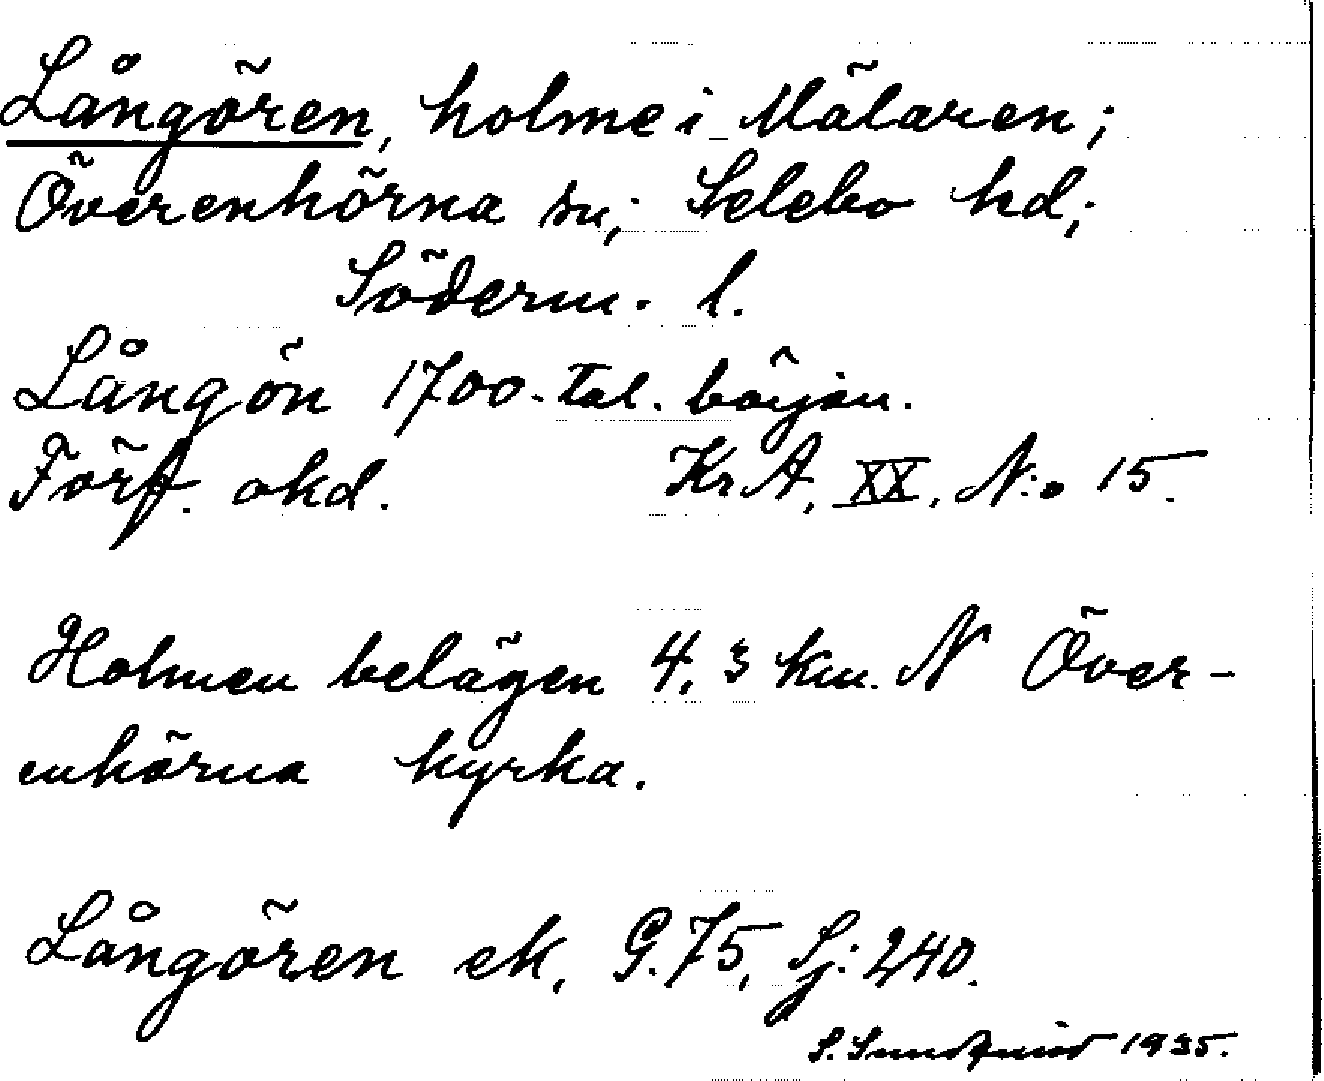 Långören, holme i Mälaren;
Överenhörna sn; Selebo hd;
Söderm. l.
Långön 1700-tal. början.
Förf. okd. KrA, XX, N:o 15.
Holmen belägen 4,3 km. N Över-
enhörna kyrka.
Långören ek, G.75, Sj:240.
S. Sundquist 1935.